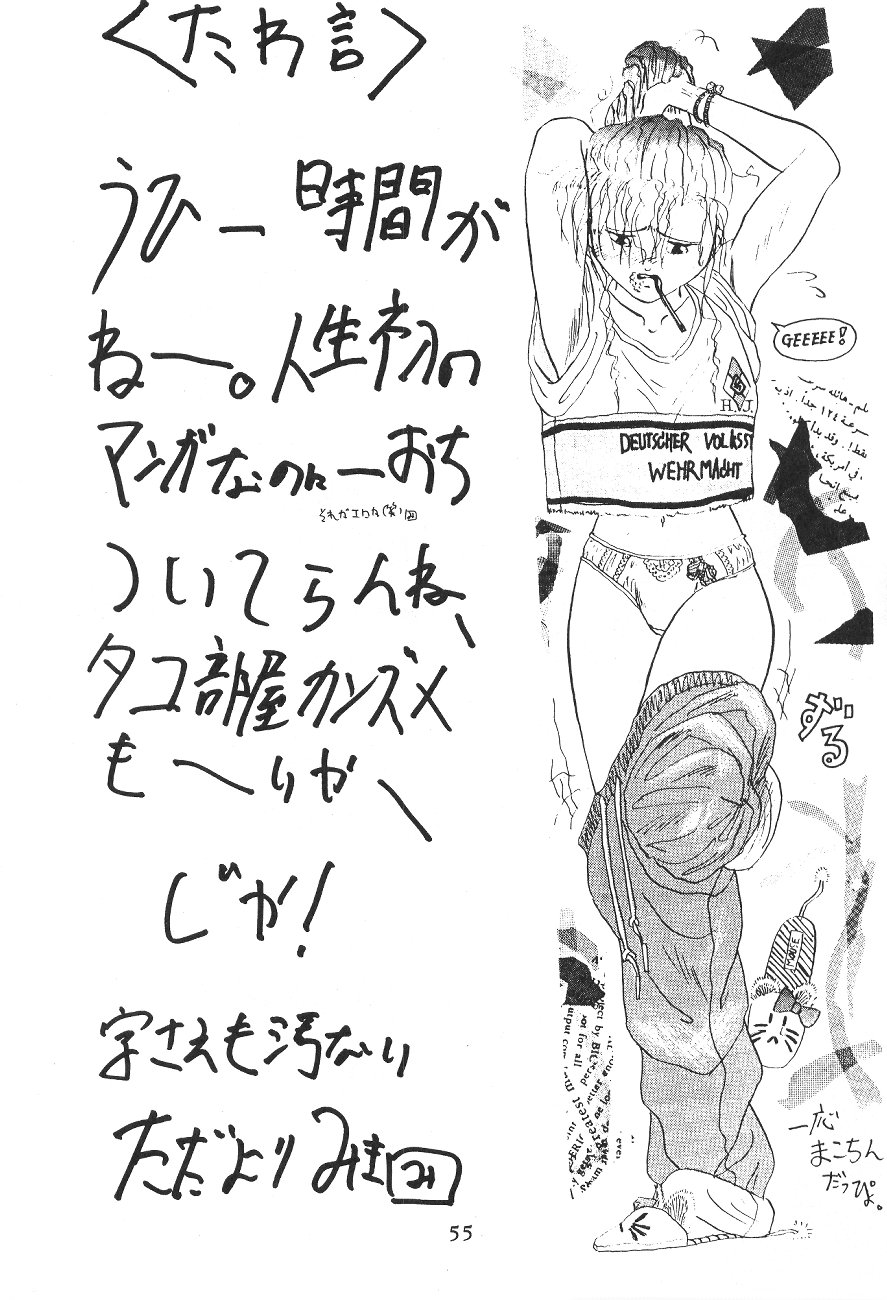 <たわ言>
うひー時間が
ねー。人生初の
マンガなのにーおち
それがエロか(笑)
ついてらんね、
タコ部屋カンズメ
も〜りか、
じか!
字さえも汚ない
ただよりみま
み
55
GEEEEE!
H.J.
DEUTSCHER VOLKSST
WEHRMACHT
ずる
MOUSE
一応
まこちん
だっぴょ。